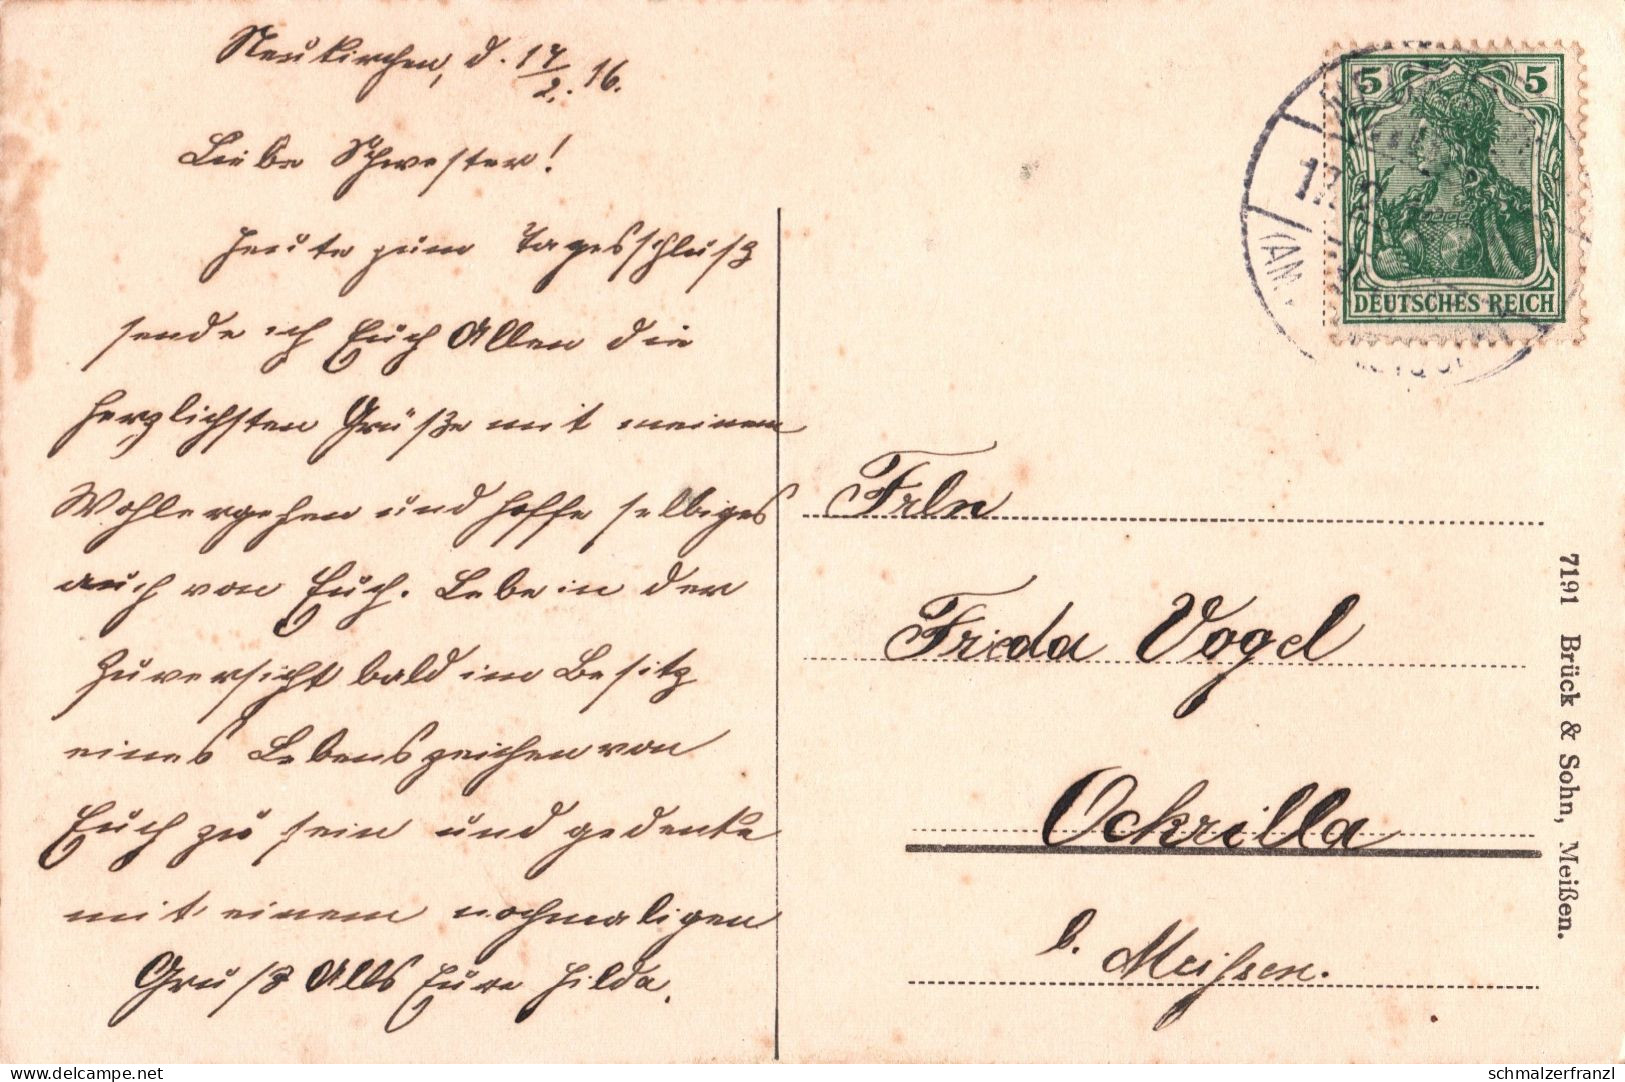 Neukirchen, d. 17/2. 16.
Liebe Schwester!
Heute zum Tagesschluß
sende ich Euch Allen die
herzlichsten Grüße mit meinem
Wohlergehen und hoffe selbiges
auch von Euch. Lebe in der
Zuversicht bald im Besitz
eines Lebenszeichen von
Euch zu sein und gedenke
mit einem nochmaligen
Gruß Alls Eure Hilda.
5 5
DEUTSCHES REICH
(AM
Frln
Frieda Vogel
Ockrilla
b. Meissen.
7191 Brück & Sohn, Meißen.
www.delcampe.net
schmalzerfranzl